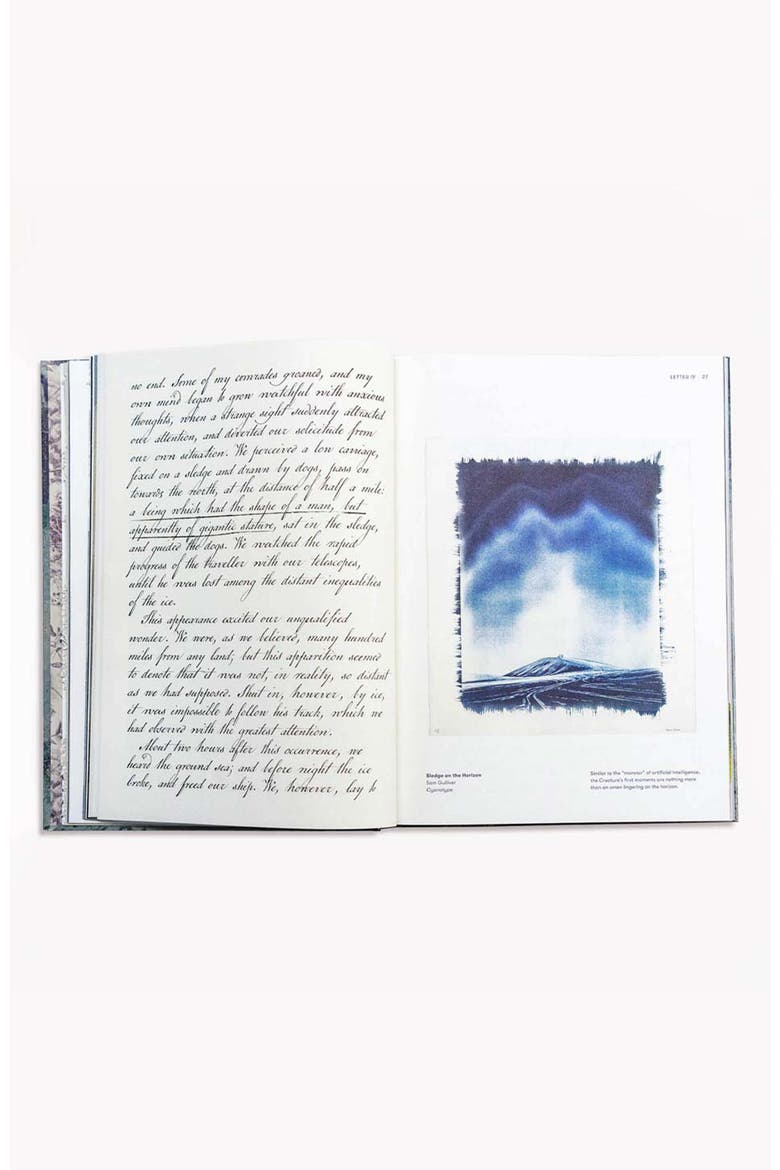 no end. Some of my comrades groaned, and my
own mind began to grow watchful with anxious
thoughts, when a strange sight suddenly attracted
our attention, and diverted our solicitude from
our own situation. We perceived a low carriage,
fixed on a sledge and drawn by dogs, pass on
towards the north, at the distance of half a mile:
a being which had the shape of a man, but
apparently of gigantic stature, sat in the sledge,
and guided the dogs. We watched the rapid
progress of the traveller with our telescopes,
until he was lost among the distant inequalities
of the ice.
This appearance excited our unqualified
wonder. We were, as we believed, many hundred
miles from any land; but this apparition seemed
to denote that it was not, in reality, so distant
as we had supposed. Shut in, however, by ice,
it was impossible to follow his track, which we
had observed with the greatest attention.
About two hours after this occurrence, we
heard the ground sea; and before night the ice
broke, and freed our ship. We, however, lay to
LETTER IV 27
Sledge on the Horizon
Sam Gulliver
Cyanotype
Similar to the "moment" of artificial intelligence,
the Creature's first moments are nothing more
than an omen lingering on the horizon.